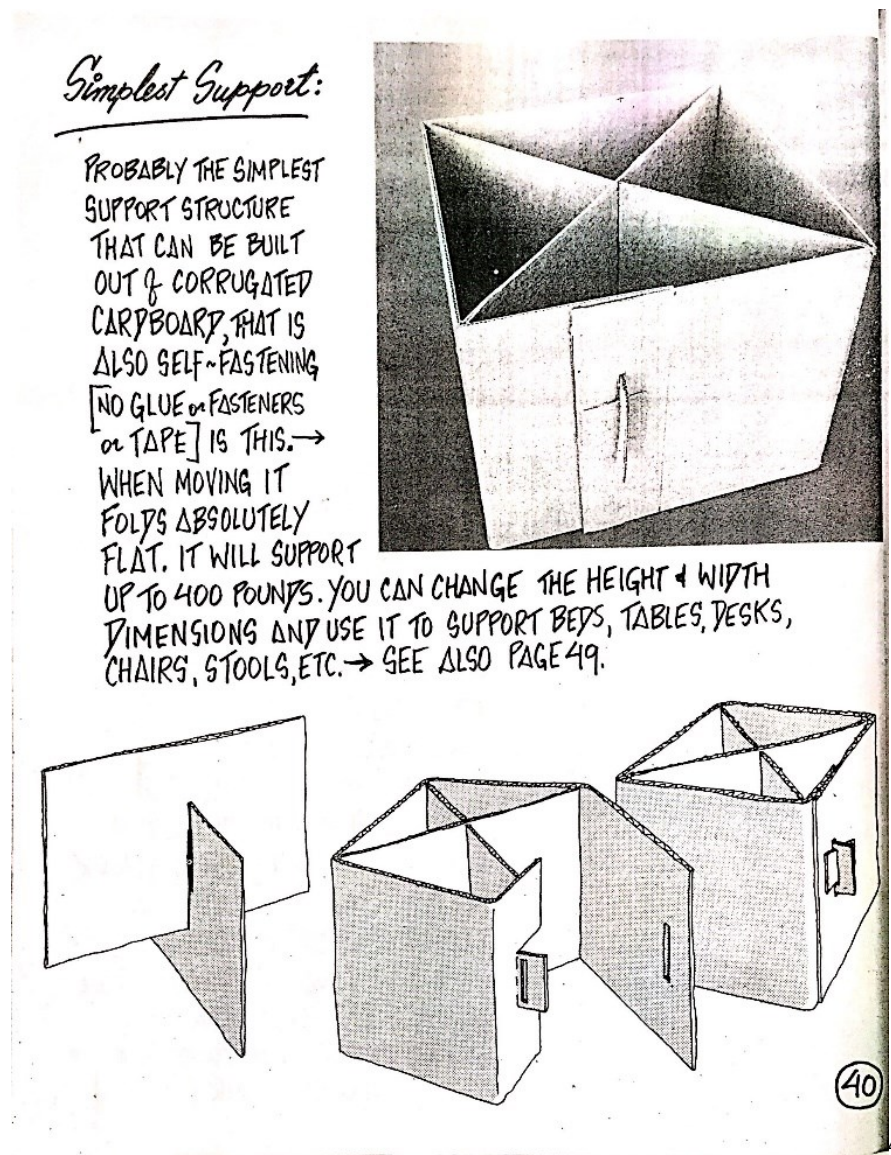 Simplest Support:
PROBABLY THE SIMPLEST
SUPPORT STRUCTURE
THAT CAN BE BUILT
OUT of CORRUGATED
CARDBOARD, THAT IS
ALSO SELF~FASTENING
[NO GLUE or FASTENERS
or TAPE] IS THIS.→
WHEN MOVING IT
FOLDS ABSOLUTELY
FLAT. IT WILL SUPPORT
UP TO 400 POUNDS. YOU CAN CHANGE THE HEIGHT & WIDTH
DIMENSIONS AND USE IT TO SUPPORT BEDS, TABLES, DESKS,
CHAIRS, STOOLS, ETC.→ SEE ALSO PAGE 49.
40